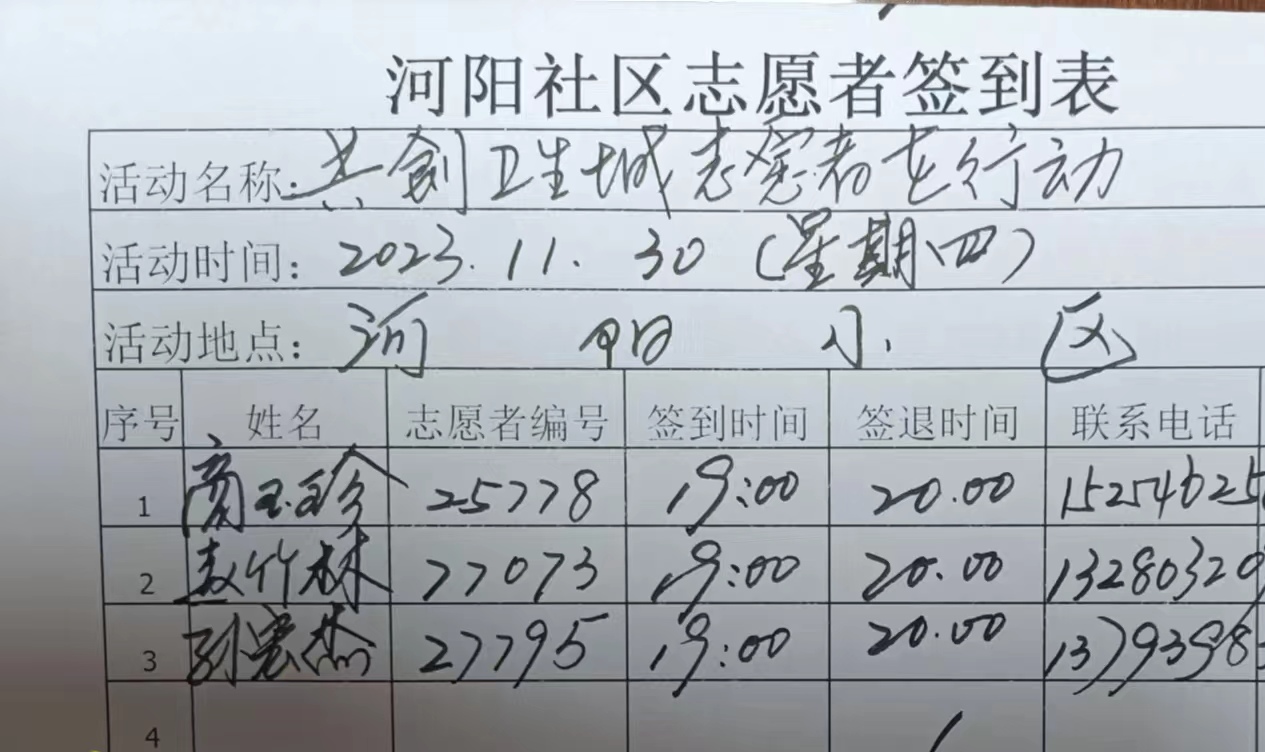 河阳社区志愿者签到表
活动名称:共创卫生城志愿者在行动
活动时间: 2023.11.30 (星期四)
活动地点: 河阳小区
序号 姓名 志愿者编号 签到时间 签退时间 联系电话
1 商玉珍 25778 19:00 20.00 15254625
2 赵竹林 77073 19:00 20.00 13280320
3 孙宏杰 27795 19:00 20.00 13793985
4